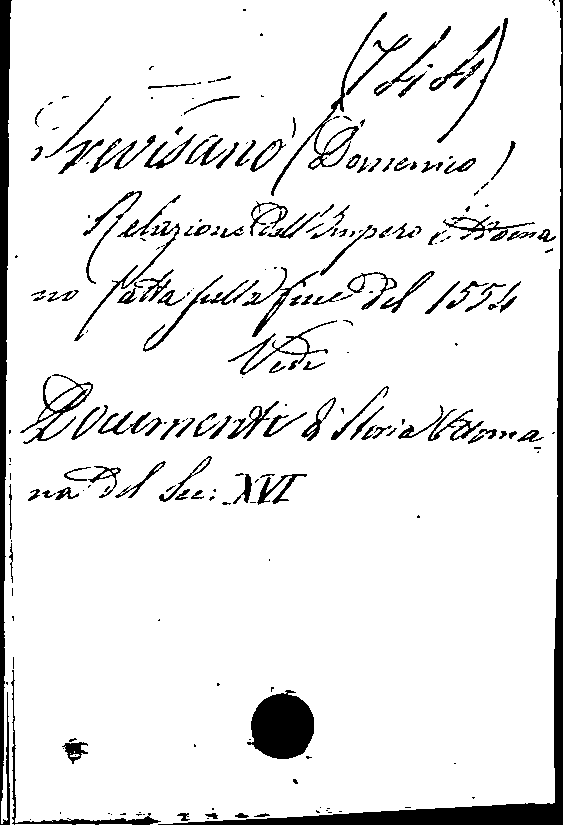 Trevisano (Domenico)
Relazione dell'Impero Ottoma-
no fatta sulla fine del 1554
Vedi
Documenti di Storia Ottoma-
na del Sec: XVI